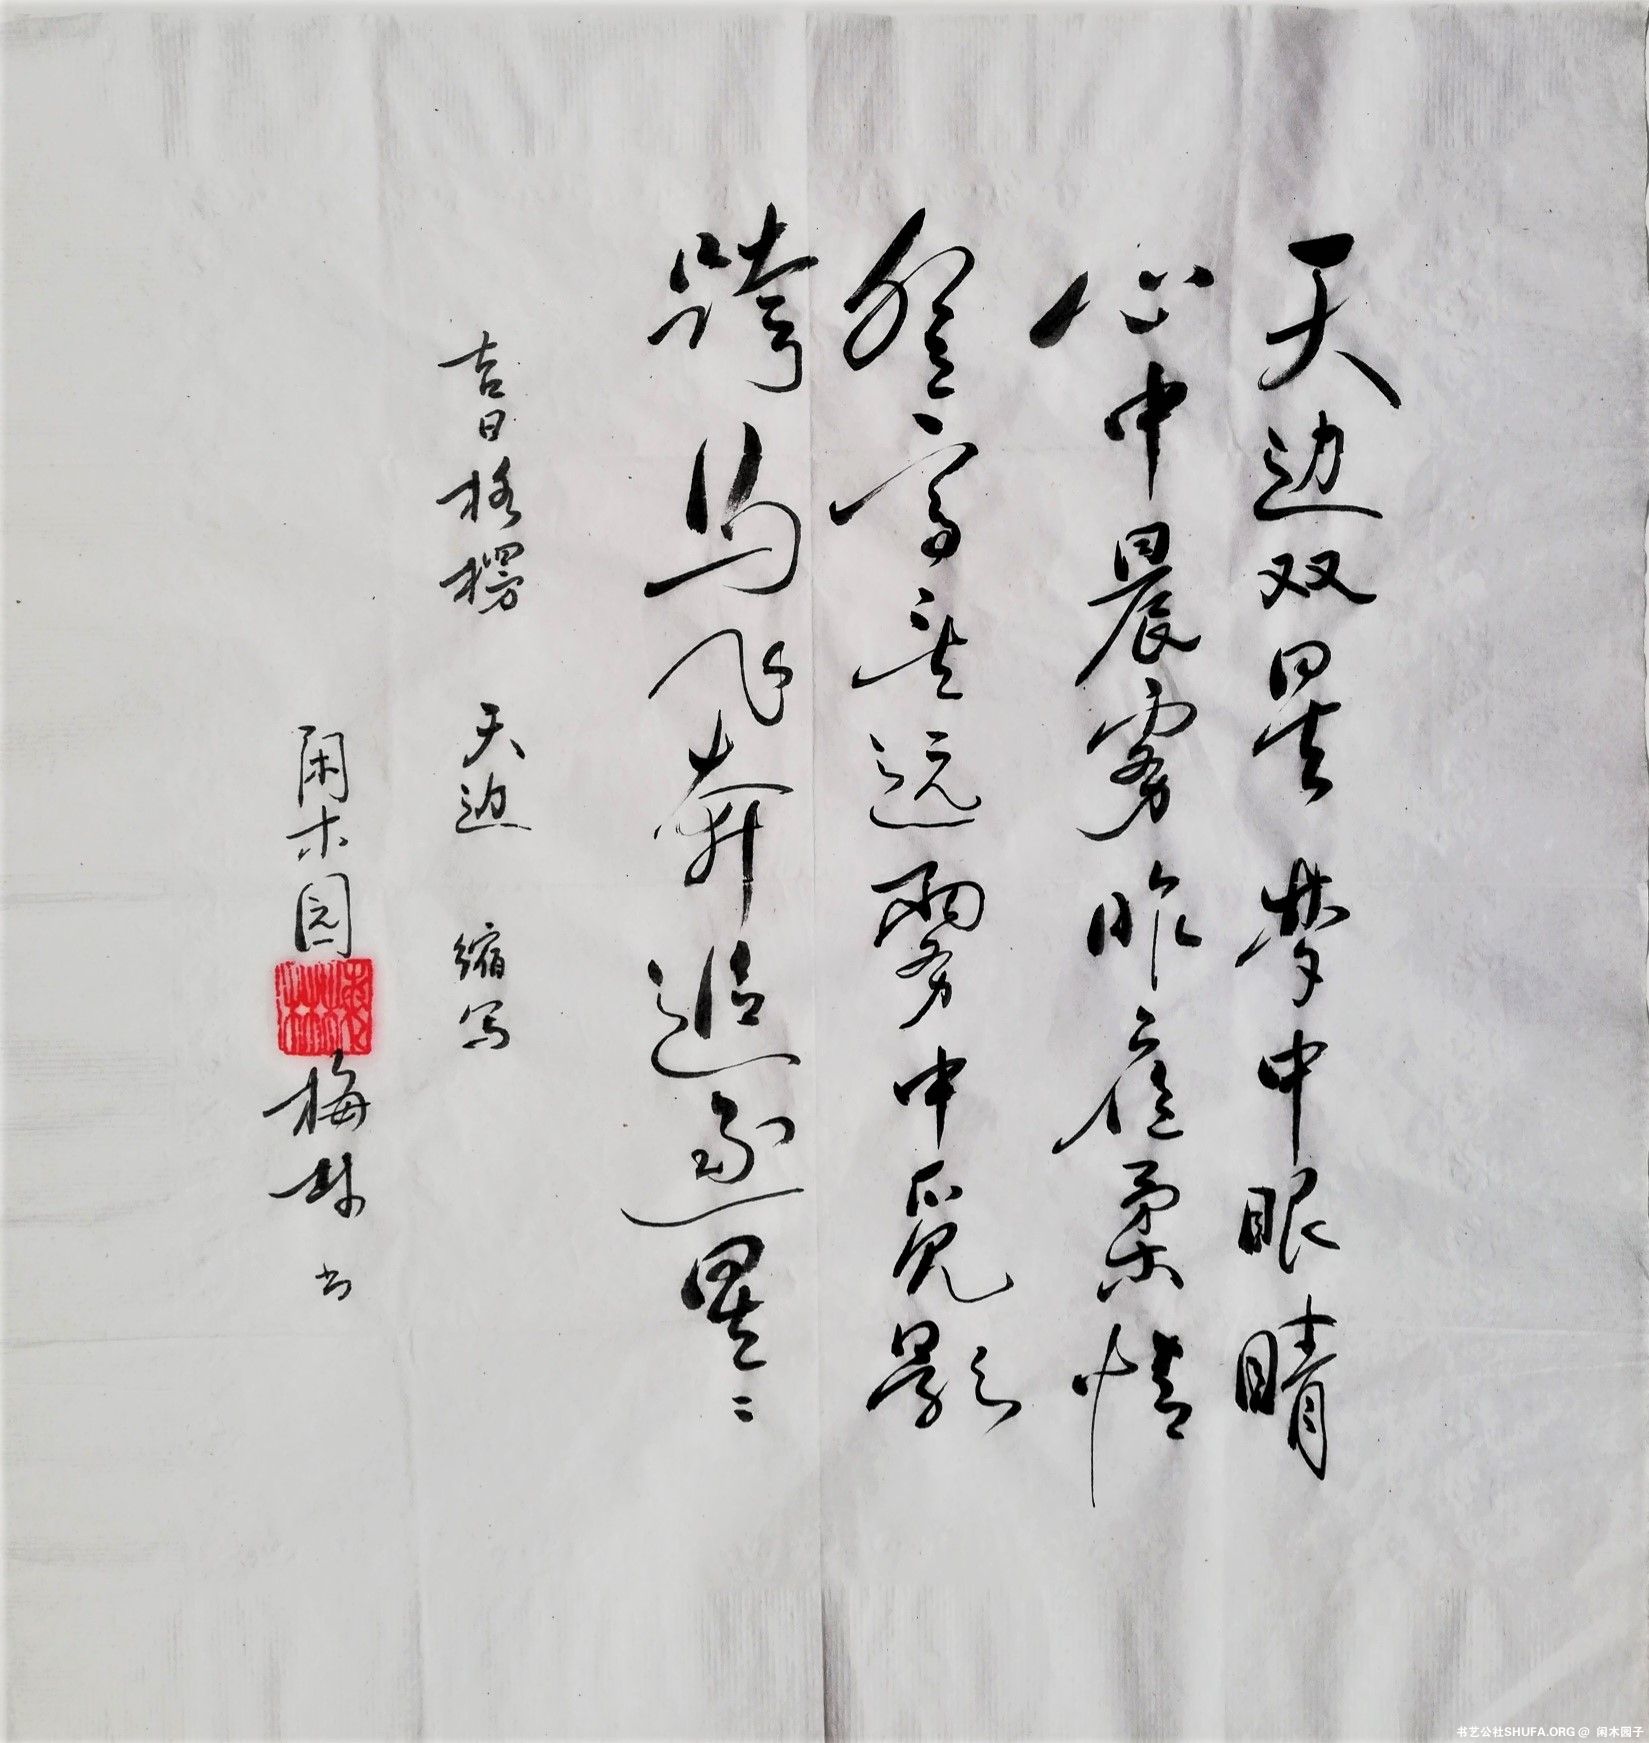 天边双星梦中眼睛
心中晨雾昨夜柔情
登高望远雾中觅影
跨马飞奔追逐星二
吉日格楞 天边 缩写
闲木园 梅林 书
书艺公社SHUFA.ORG @ 闲木园子